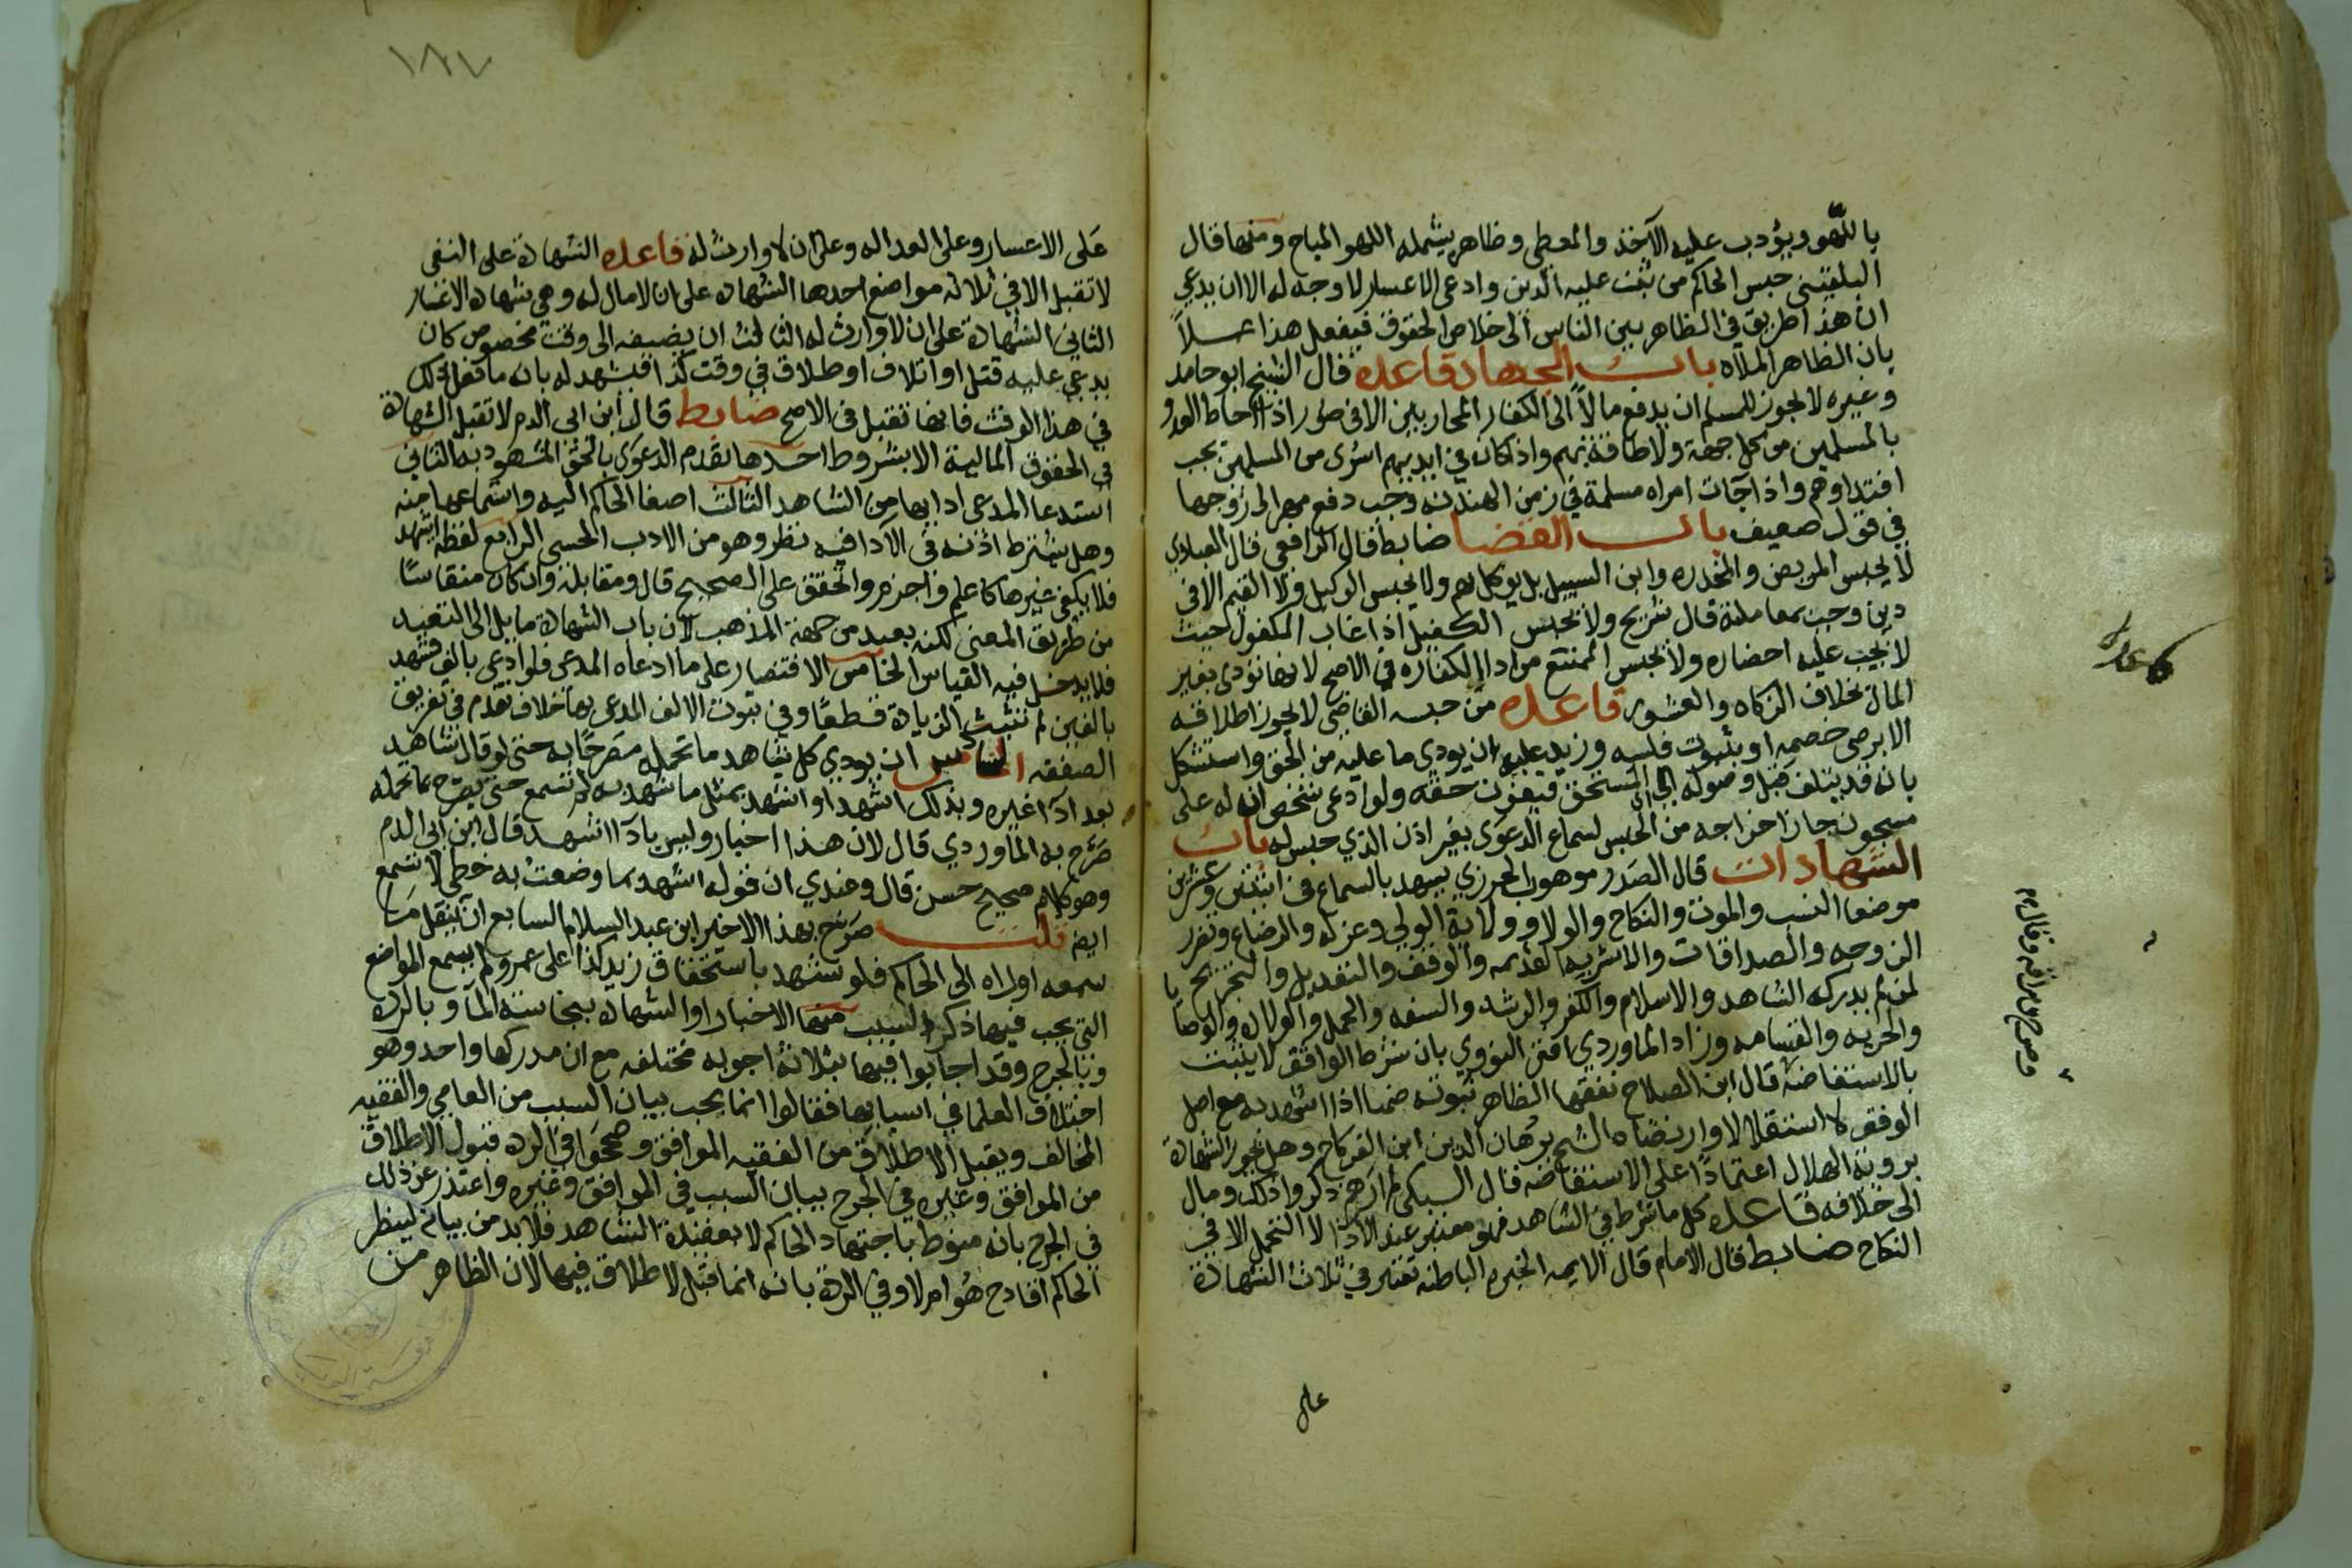 باللهو ويؤدب عليه الآخذ والمعطى وظاهره يشمله اللهو المباح ومنها قال
البلقيني حبس الحاكم من ثبت عليه الدين وادعى الاعسار لا وجه له الا ان يدعي
ان هذا طريق في الظاهر بين الناس الى خلاص الحقوق فيفعل هذا عملاً
بان الظاهر الملاه باب الجهاد قاعده قال الشيخ ابو حامد
وغيره لا يجوز للمسلم ان يدفع مالاً الى الكفار المحاربين الا في صور اذا احاط العدو
بالمسلمين من كل جهة ولا طاقة بهم واذا كان في ايديهم اسرى من المسلمين يجب
افتداوهم واذا جات امراه مسلمة في زمن الهدنه وجب دفع مهر الى زوجها
في قول ضعيف باب القضا ضابط قال الرافعي قال العبادي
لا يحبس المريض والمخدره وابن السبيل بل يوكل بهم ولا يحبس الوكيل ولا القيم الا في
دين وجب بمعاملته قال شريح ولا يحبس الكفيل اذا غاب المكفول حيث
لا يجب عليه احضاره ولا يحبس الممتنع من ادا الكفاره في الاصح لانها تؤدى بغير
المال بخلاف الزكاه والعشور قاعده من حبسه القاضي لا يجوز اطلاقه
الا برضى خصمه او بثبوت فلسه وزيد عليه ان يودي ما عليه من الحق واستشكل
بانه قد يتلف قبل وصوله الى المستحق فيفوت حقه ولو ادعى شخص ان له على
مسجون جاز اخراجه من الحبس لسماع الدعوى بغير اذن الذي حبس له باب
الشهادات قال الصدر موهوب الجزري يشهد بالسماع في اثنين وعشرين
موضعا النسب والموت والنكاح والولا وولاية الولي وعزله والرضاع وتضرر
الزوجه والصداقات والاشربه القديمه والوقف والتعديل والتجريح
لمن لم يدركه الشاهد والاسلام والكفر والرشد والسفه والحمل والولاده والوصايا
والحريه والقسامه وزاد الماوردي افتى النووي بان شرط الواقف لا يثبت
بالاستفاضة قال ابن الصلاح تفقها الظاهر ثبوته ضمنا اذا شهد به مع اصل
الوقف لا استقلالا وارتضاه الشيخ برهان الدين ابن الفركاح وهل تجوز الشهادة
برؤية الهلال اعتمادًا على الاستفاضه قال السبكي لم ارهم ذكروا ذلك ومال
الى خلافه قاعده كل ما شرط في الشاهد فهو معتبر عند الادا لا التحمل الا في
النكاح ضابط قال الامام قال الايمه الخبره الباطنه تعتبر في ثلاث الشهادة
على
١٨٧
على الاعسار وعلى العداله وعلى ان لا وارث له قاعده الشهادة على النفي
لا تقبل الا في ثلاثه مواضع احدها الشهاده على ان لا مال له وهي شهاده الاعسار
الثاني الشهادة على ان لا وارث له الثالث ان يضيفه الى وقت مخصوص كان
يدعي عليه قتل او اتلاف او طلاق في وقت كذا فيشهد له بانه ما فعل ذلك
في هذا الوقت فانها تقبل في الاصح ضابط قال ابن ابي الدم لا تقبل الشهادة
في الحقوق المالية الا بشروط احدها تقدم الدعوى بالحق المشهود به الثاني
استدعا المدعي اداها من الشاهد الثالث اصغا الحاكم اليه واستماعها منه
وهل يشترط اذنه في الادا فيه نظر وهو من الادب الحسن الرابع لفظه اشهد
فلا يكفي غيرها كاعلم واجزم واتحقق على الصحيح قال ومقابله وان كان منقاسًا
من طريق المعنى لكنه بعيد من جهة المذهب لان باب الشهادة مايل الى التعبد
فلا يدخل فيه القياس الخامس الاقتصار على ما ادعاه المدعي فلو ادعى بالف فشهد
بالفين لم تثبت الزيادة قطعًا وفي ثبوت الالف المدعى بها خلاف تقدم في تفريق
الصفقه السادس ان يودي كل شاهد ما تحمله مصرحًا به حتى لو قال شاهد
بعد ادا غيره وبذلك اشهد او اشهد بمثل ما شهد به لم تسمع حتى يصرح بما تحمله
صرح به الماوردي قال لان هذا اخبار وليس بادا اشهد قال ابن ابي الدم
وهو كلام صحيح حسن قال وعندي ان قوله اشهد بما وضعت به خطي لا تسمع
ايضا قلت صرح بهذا الاخير ابن عبد السلام السابع ان ينقل ما
سمعه او راه الى الحاكم فلو شهد باستحقاق زيد كذا على عمرو لم يسمع المواضع
التي يجب فيها ذكر السبب منها الاخبار او الشهاده بنجاسة الما وبالرده
وبالجرح وقد اجابوا فيها بثلاثة اجوبه مختلفه مع ان مدركها واحد وهو
اختلاف العلما في اسبابها فقالوا انما يجب بيان السبب من العامي والفقيه
المخالف ويقبل الاطلاق من الفقيه الموافق وصححوا في الرده قبول الاطلاق
من الموافق وغيره في الجرح بيان السبب في الموافق وغيره واعتذر عن ذلك
في الجرح بانه منوط باجتهاد الحاكم لا بعقيدة الشاهد فلا بد من بيانه لينظر
الحاكم اقادح هو ام لا وفي الردة بانه انما قبل الاطلاق فيها لان الظاهر من